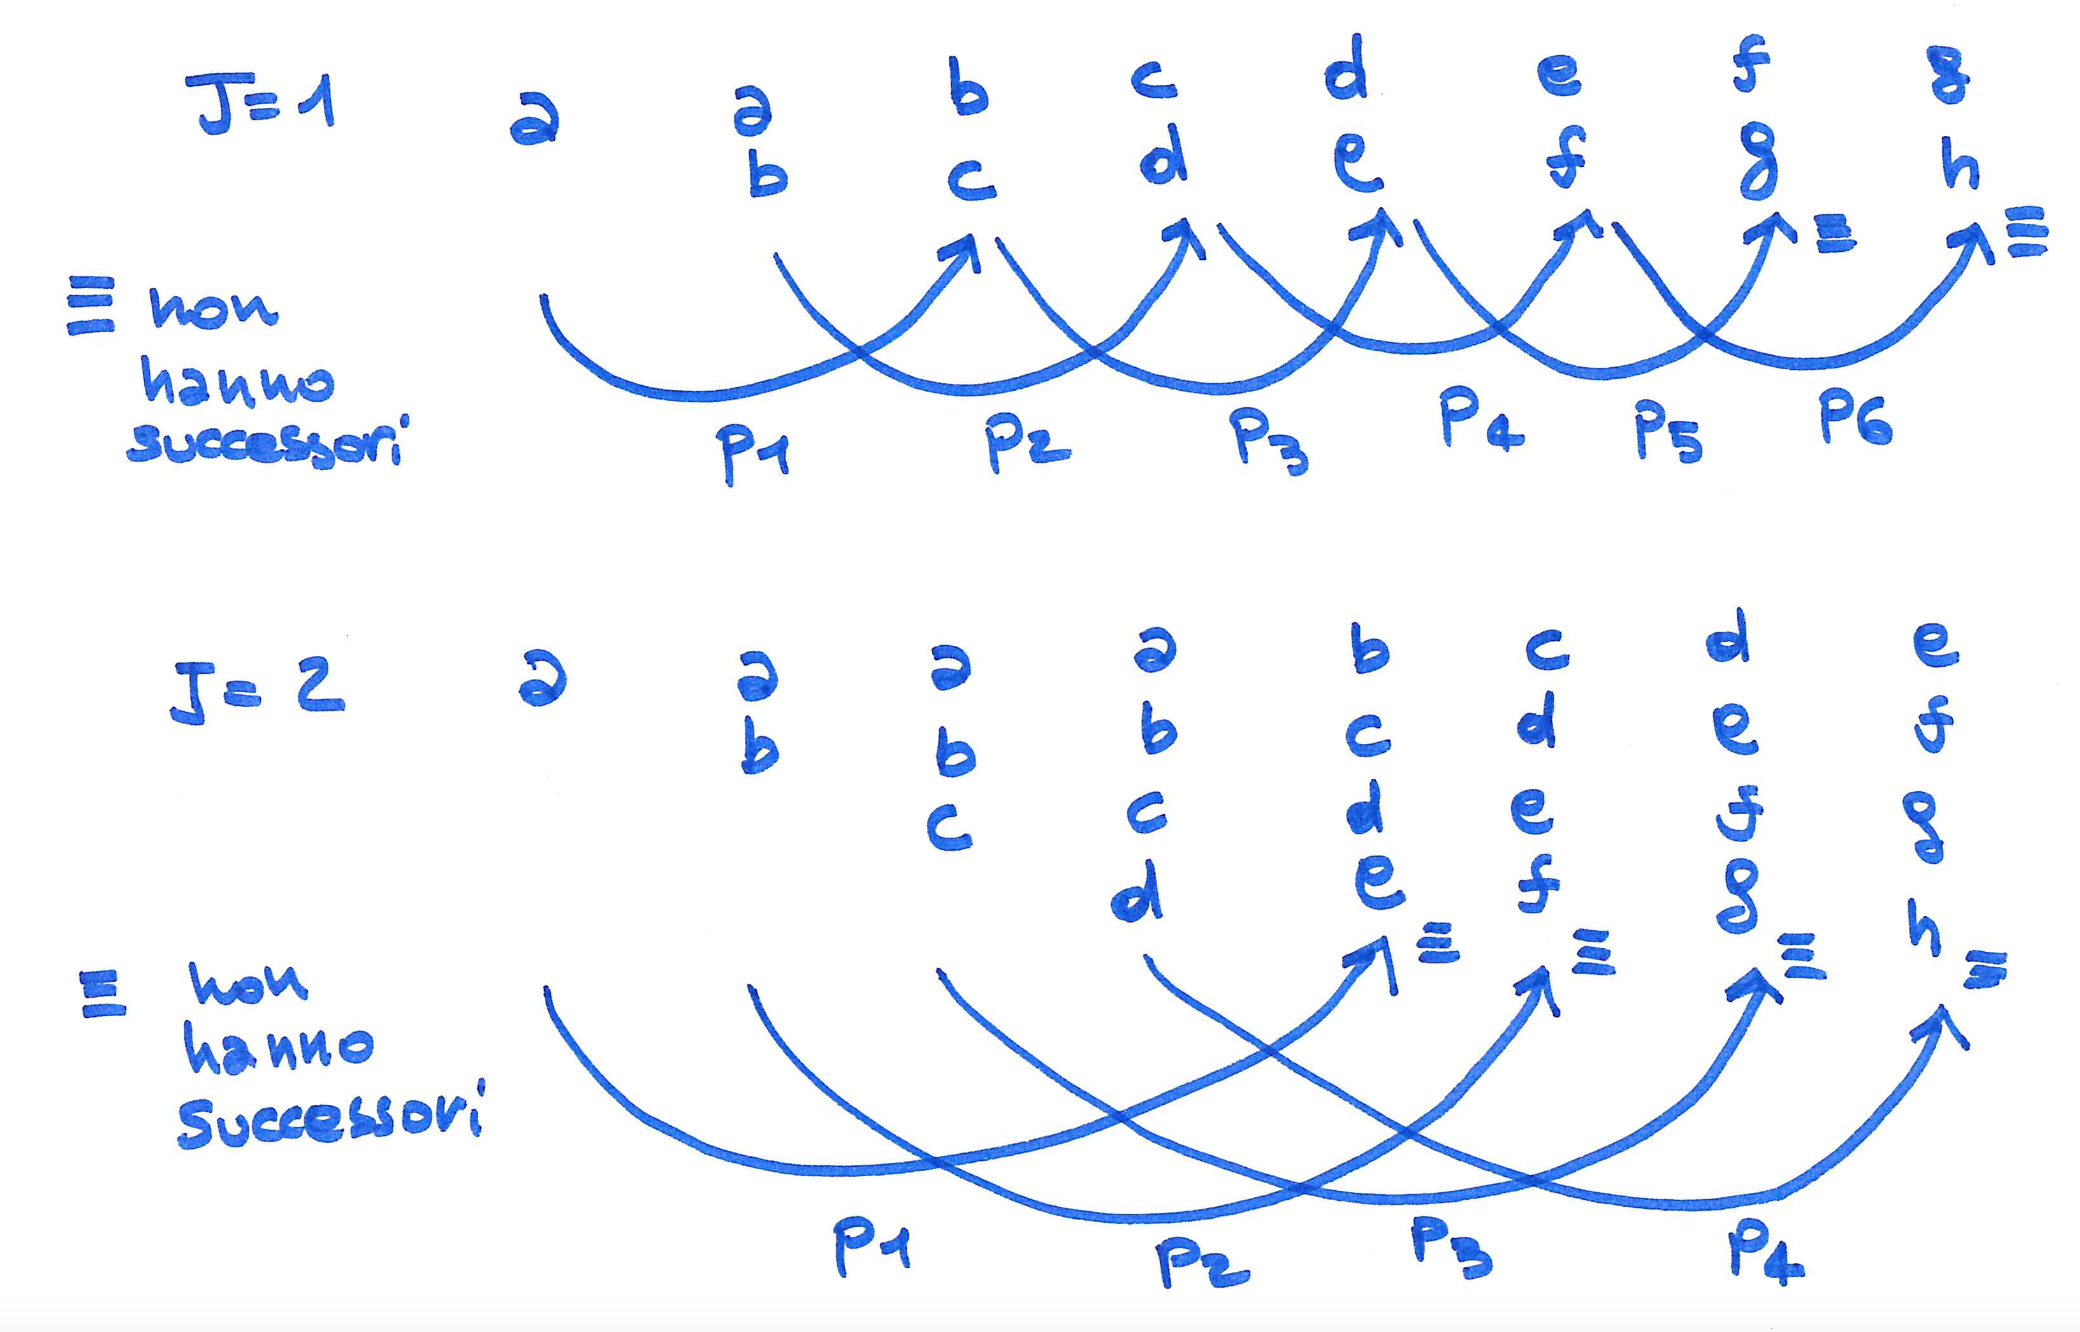 J=1 a a b c d e f g
b c d e f g h
≡ ≡
≡ non
hanno
successori
P1 P2 P3 P4 P5 P6
J=2 a a a a b c d e
b b b c d e f
c c d e f g
d e f g h
≡ ≡ ≡ ≡
≡ non
hanno
successori
P1 P2 P3 P4